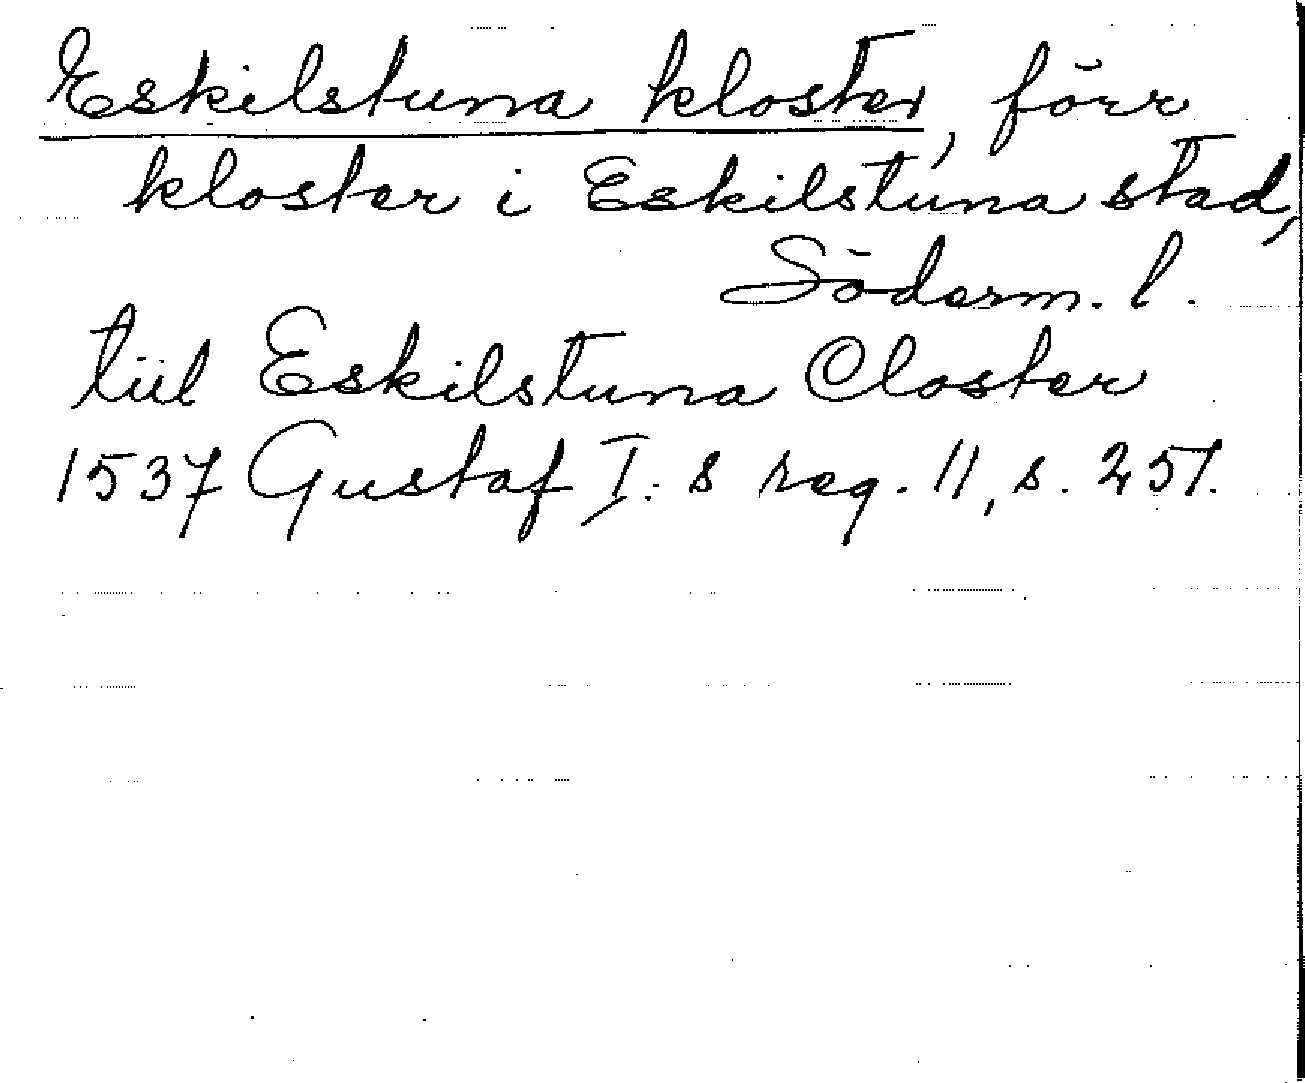 Eskilstuna kloster, förr
kloster i Eskilstuna stad,
Söderm. l.
tiil Eskilstuna Closter
1537 Gustaf I:s reg. 11, s. 251.